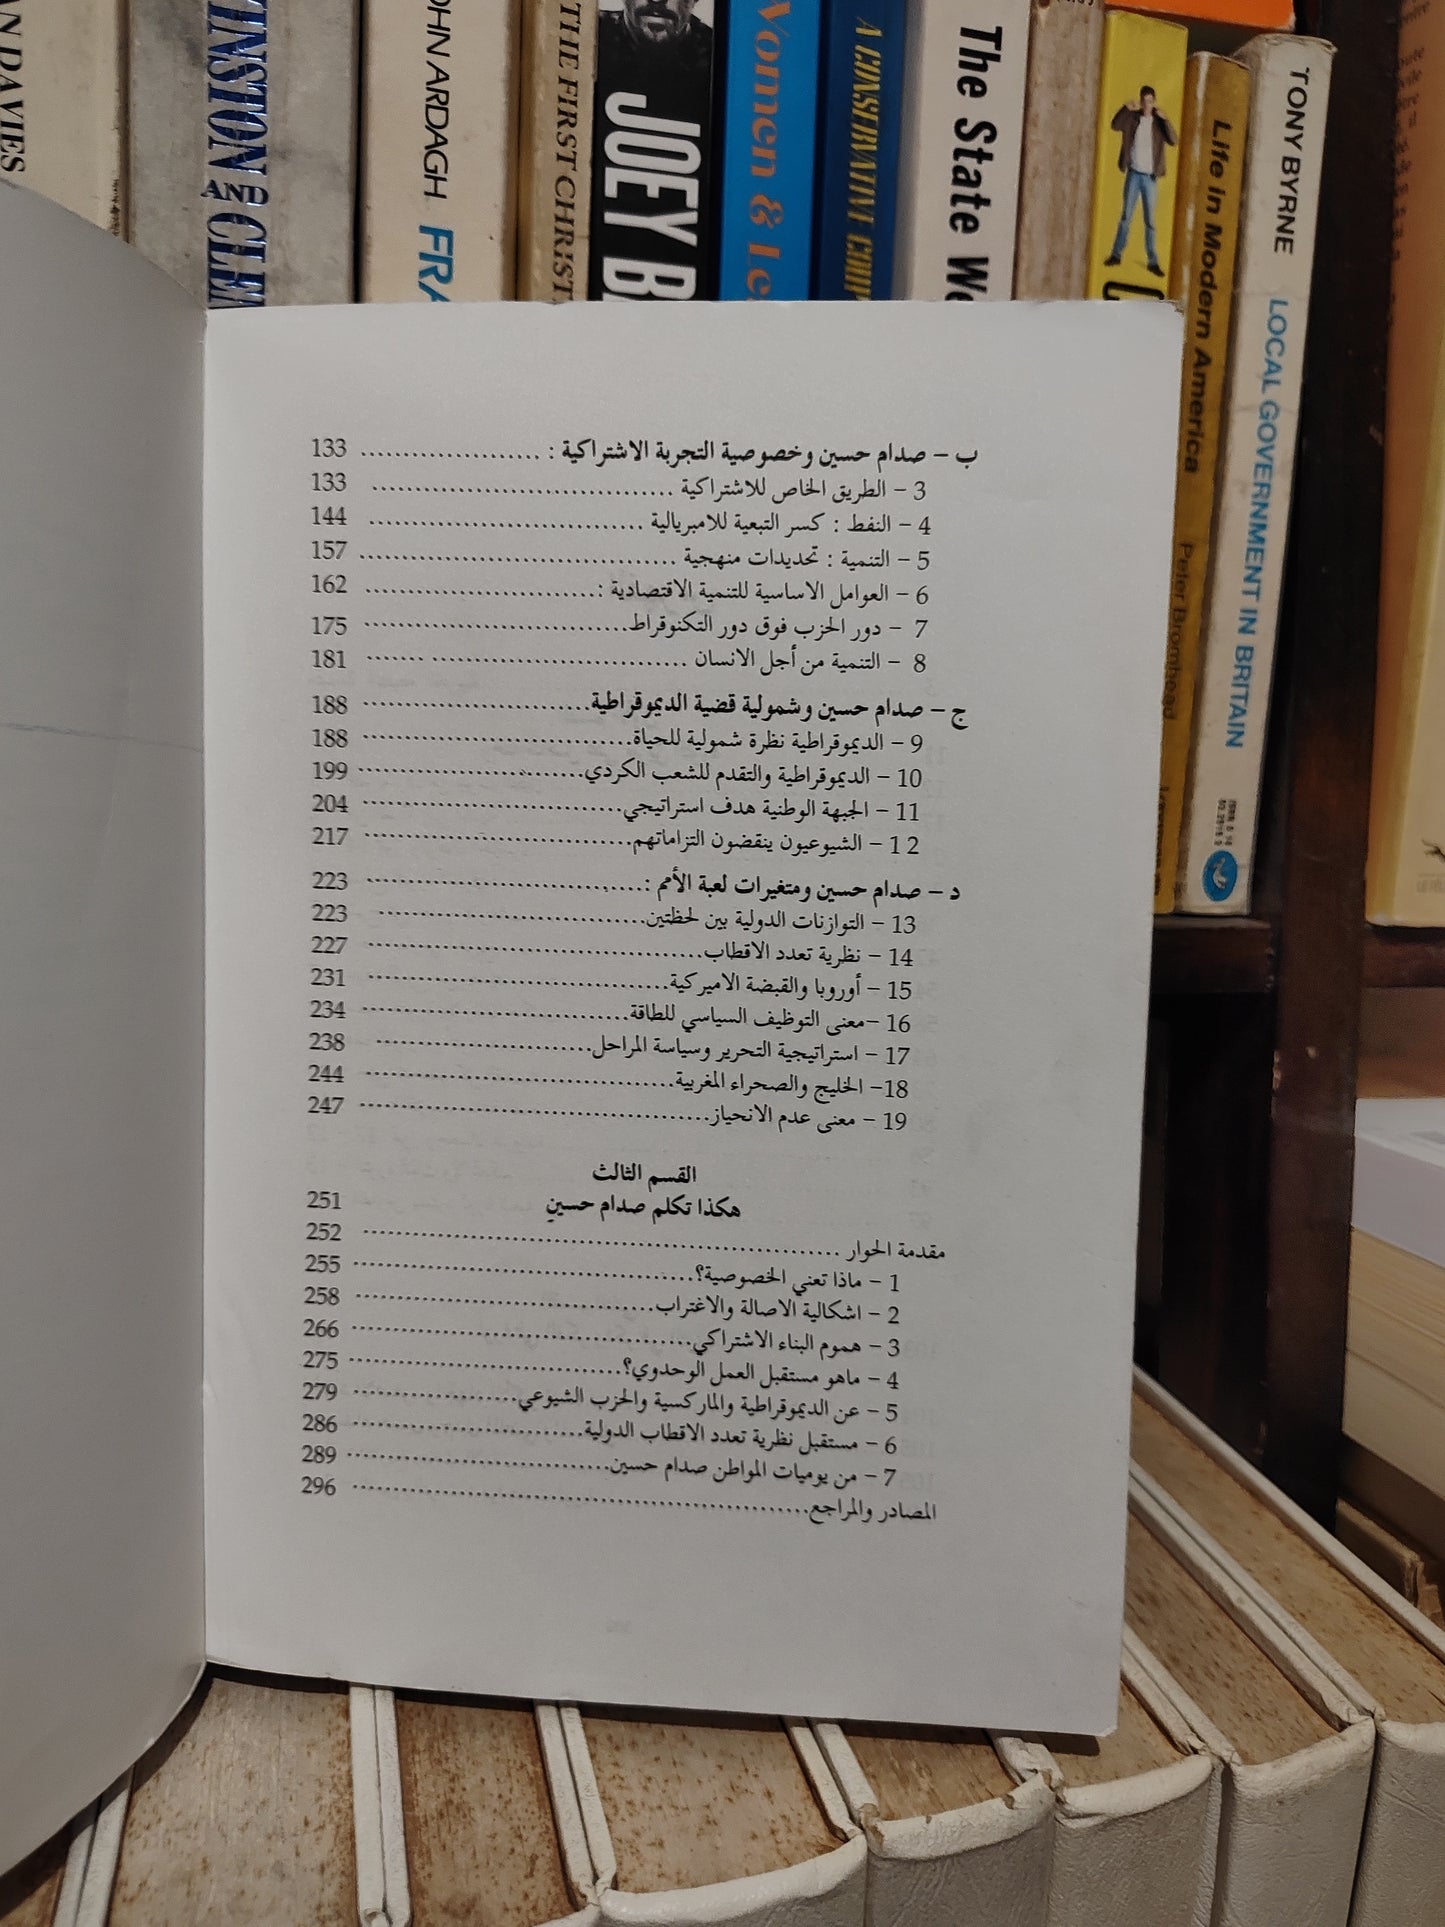 AN DAVIES
INSTON AND CLEM
OHN ARDAGH FRA
THE FIRST CHRIST
JOEY B
Women & Les
A CONSERVATIVE COUP
The State We
Life in Modern America Peter Bromhead
TONY BYRNE LOCAL GOVERNMENT IN BRITAIN
ب – صدام حسين وخصوصية التجربة الاشتراكية : ..................... 133
3 – الطريق الخاص للاشتراكية .................................... 133
4 – النفط : كسر التبعية للامبريالية ................................. 144
5 – التنمية : تحديدات منهجية ...................................... 157
6 – العوامل الاساسية للتنمية الاقتصادية :........................... 162
7 – دور الحزب فوق دور التكنوقراط............................... 175
8 – التنمية من أجل الانسان ..................................... 181
ج – صدام حسين وشمولية قضية الديموقراطية........................... 188
9 – الديموقراطية نظرة شمولية للحياة................................ 188
10 – الديموقراطية والتقدم للشعب الكردي........................... 199
11 – الجبهة الوطنية هدف استراتيجي............................... 204
12 – الشيوعيون ينقضون التزاماتهم................................ 217
د – صدام حسين ومتغيرات لعبة الأمم :................................. 223
13 – التوازنات الدولية بين لحظتين................................ 223
14 – نظرية تعدد الاقطاب........................................ 227
15 – أوروبا والقبضة الاميركية.................................... 231
16 –معنى التوظيف السياسي للطاقة................................ 234
17 – استراتيجية التحرير وسياسة المراحل.......................... 238
18– الخليج والصحراء المغربية..................................... 244
19 – معنى عدم الانحياز.......................................... 247
القسم الثالث
هكذا تكلم صدام حسين 251
مقدمة الحوار ......................................................... 252
1 – ماذا تعني الخصوصية؟......................................... 255
2 – اشكالية الاصالة والاغتراب.................................... 258
3 – هموم البناء الاشتراكي......................................... 266
4 – ماهو مستقبل العمل الوحدوي؟................................ 275
5 – عن الديموقراطية والماركسية والحزب الشيوعي.................... 279
6 – مستقبل نظرية تعدد الاقطاب الدولية........................... 286
7 – من يوميات المواطن صدام حسين................................ 289
المصادر والمراجع...................................................... 296